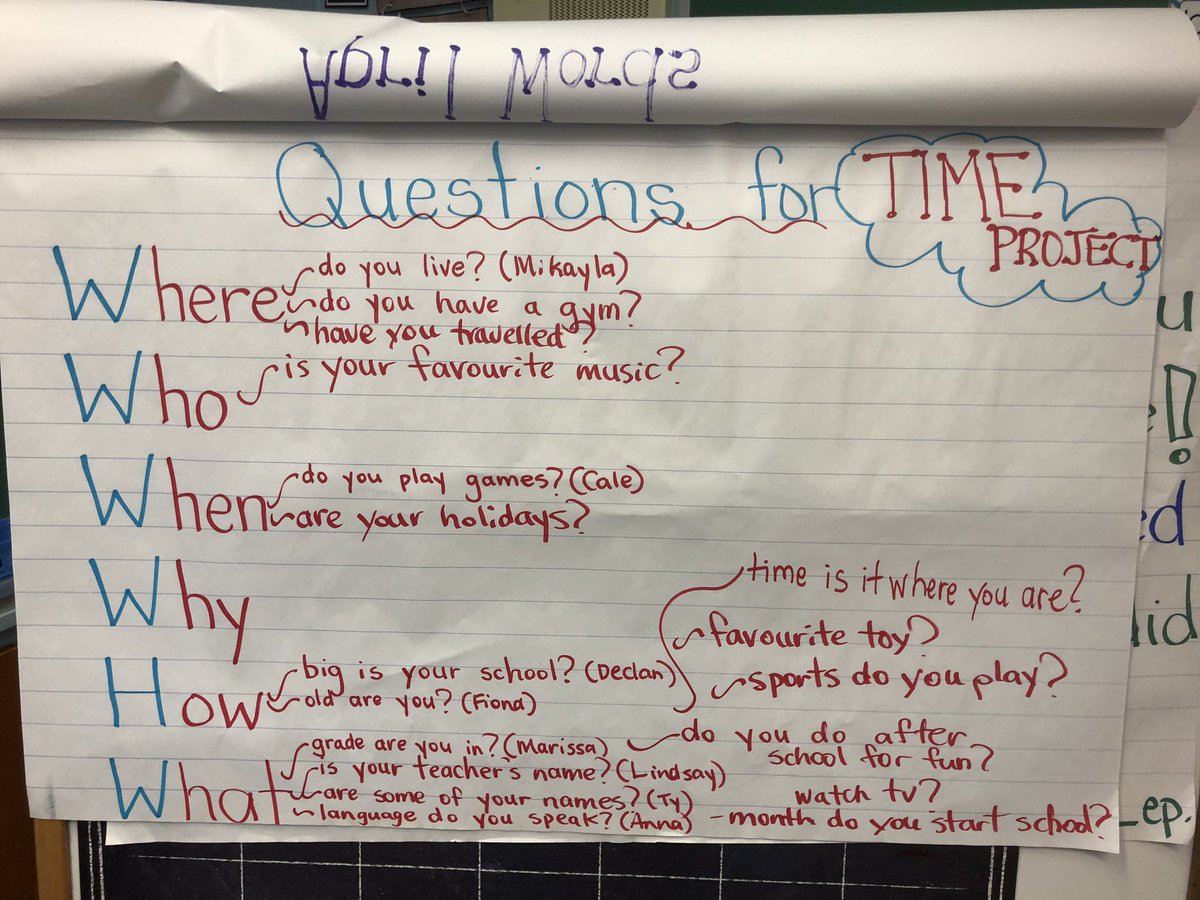 April Words
Questions for TIME
PROJECT
Where do you live? (Mikayla)
do you have a gym?
have you travelled?
Who is your favourite music?
When do you play games? (Cale)
are your holidays?
Why
How big is your school? (Declan)
old are you? (Fiona)
What grade are you in? (Marissa)
is your teacher's name? (Lindsay)
are some of your names? (Ty)
language do you speak? (Anna)
time is it where you are?
favourite toy?
sports do you play?
do you do after
school for fun?
watch tv?
-month do you start school?
u
!
ed
id
ep.